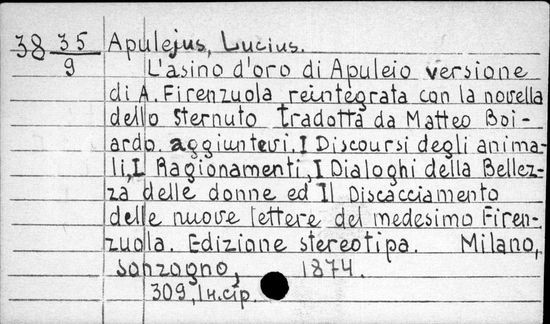 38 35/9 Apulejus, Lucius.
L'asino d'oro di Apuleio versione
di A. Firenzuola reintegrata con la novella
dello sternuto tradotta da Matteo Boi-
ardo. aggiuntevi, I Discoursi degli anima-
li, I Ragionamenti, I Dialoghi della Bellez-
za delle donne ed Il Discacciamento
delle nuove lettere del medesimo Firen-
zuola. Edizione stereotipa. Milano,
sonzogno, 1874.
309, 1 н. cip.